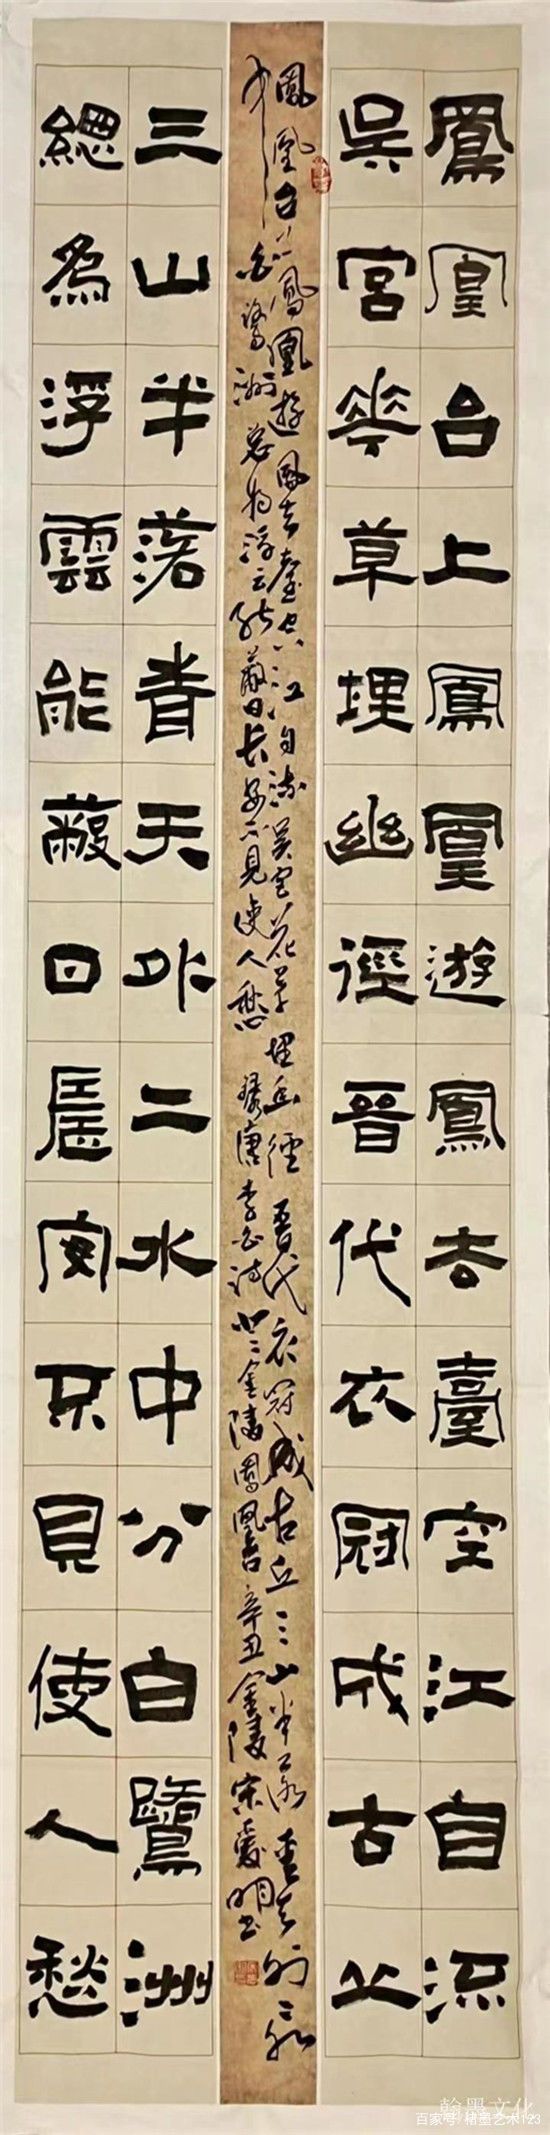 鳳凰台上鳳凰遊鳳去臺空江自流
吳宮華草埋幽徑晉代衣冠成古丘
鳳凰台上鳳凰遊鳳去臺空江自流吳宮花草埋幽徑晉代衣冠成古丘三山半落青天外二水
中分白鷺洲總為浮雲能蔽日長安不見使人愁 錄唐李白詩登金陵鳳凰台 辛丑金陵宋愛明書
三山半落青天外二水中分白鷺洲
總為浮雲能蔽日長安不見使人愁
翰墨文化
百家号/楮墨艺术123